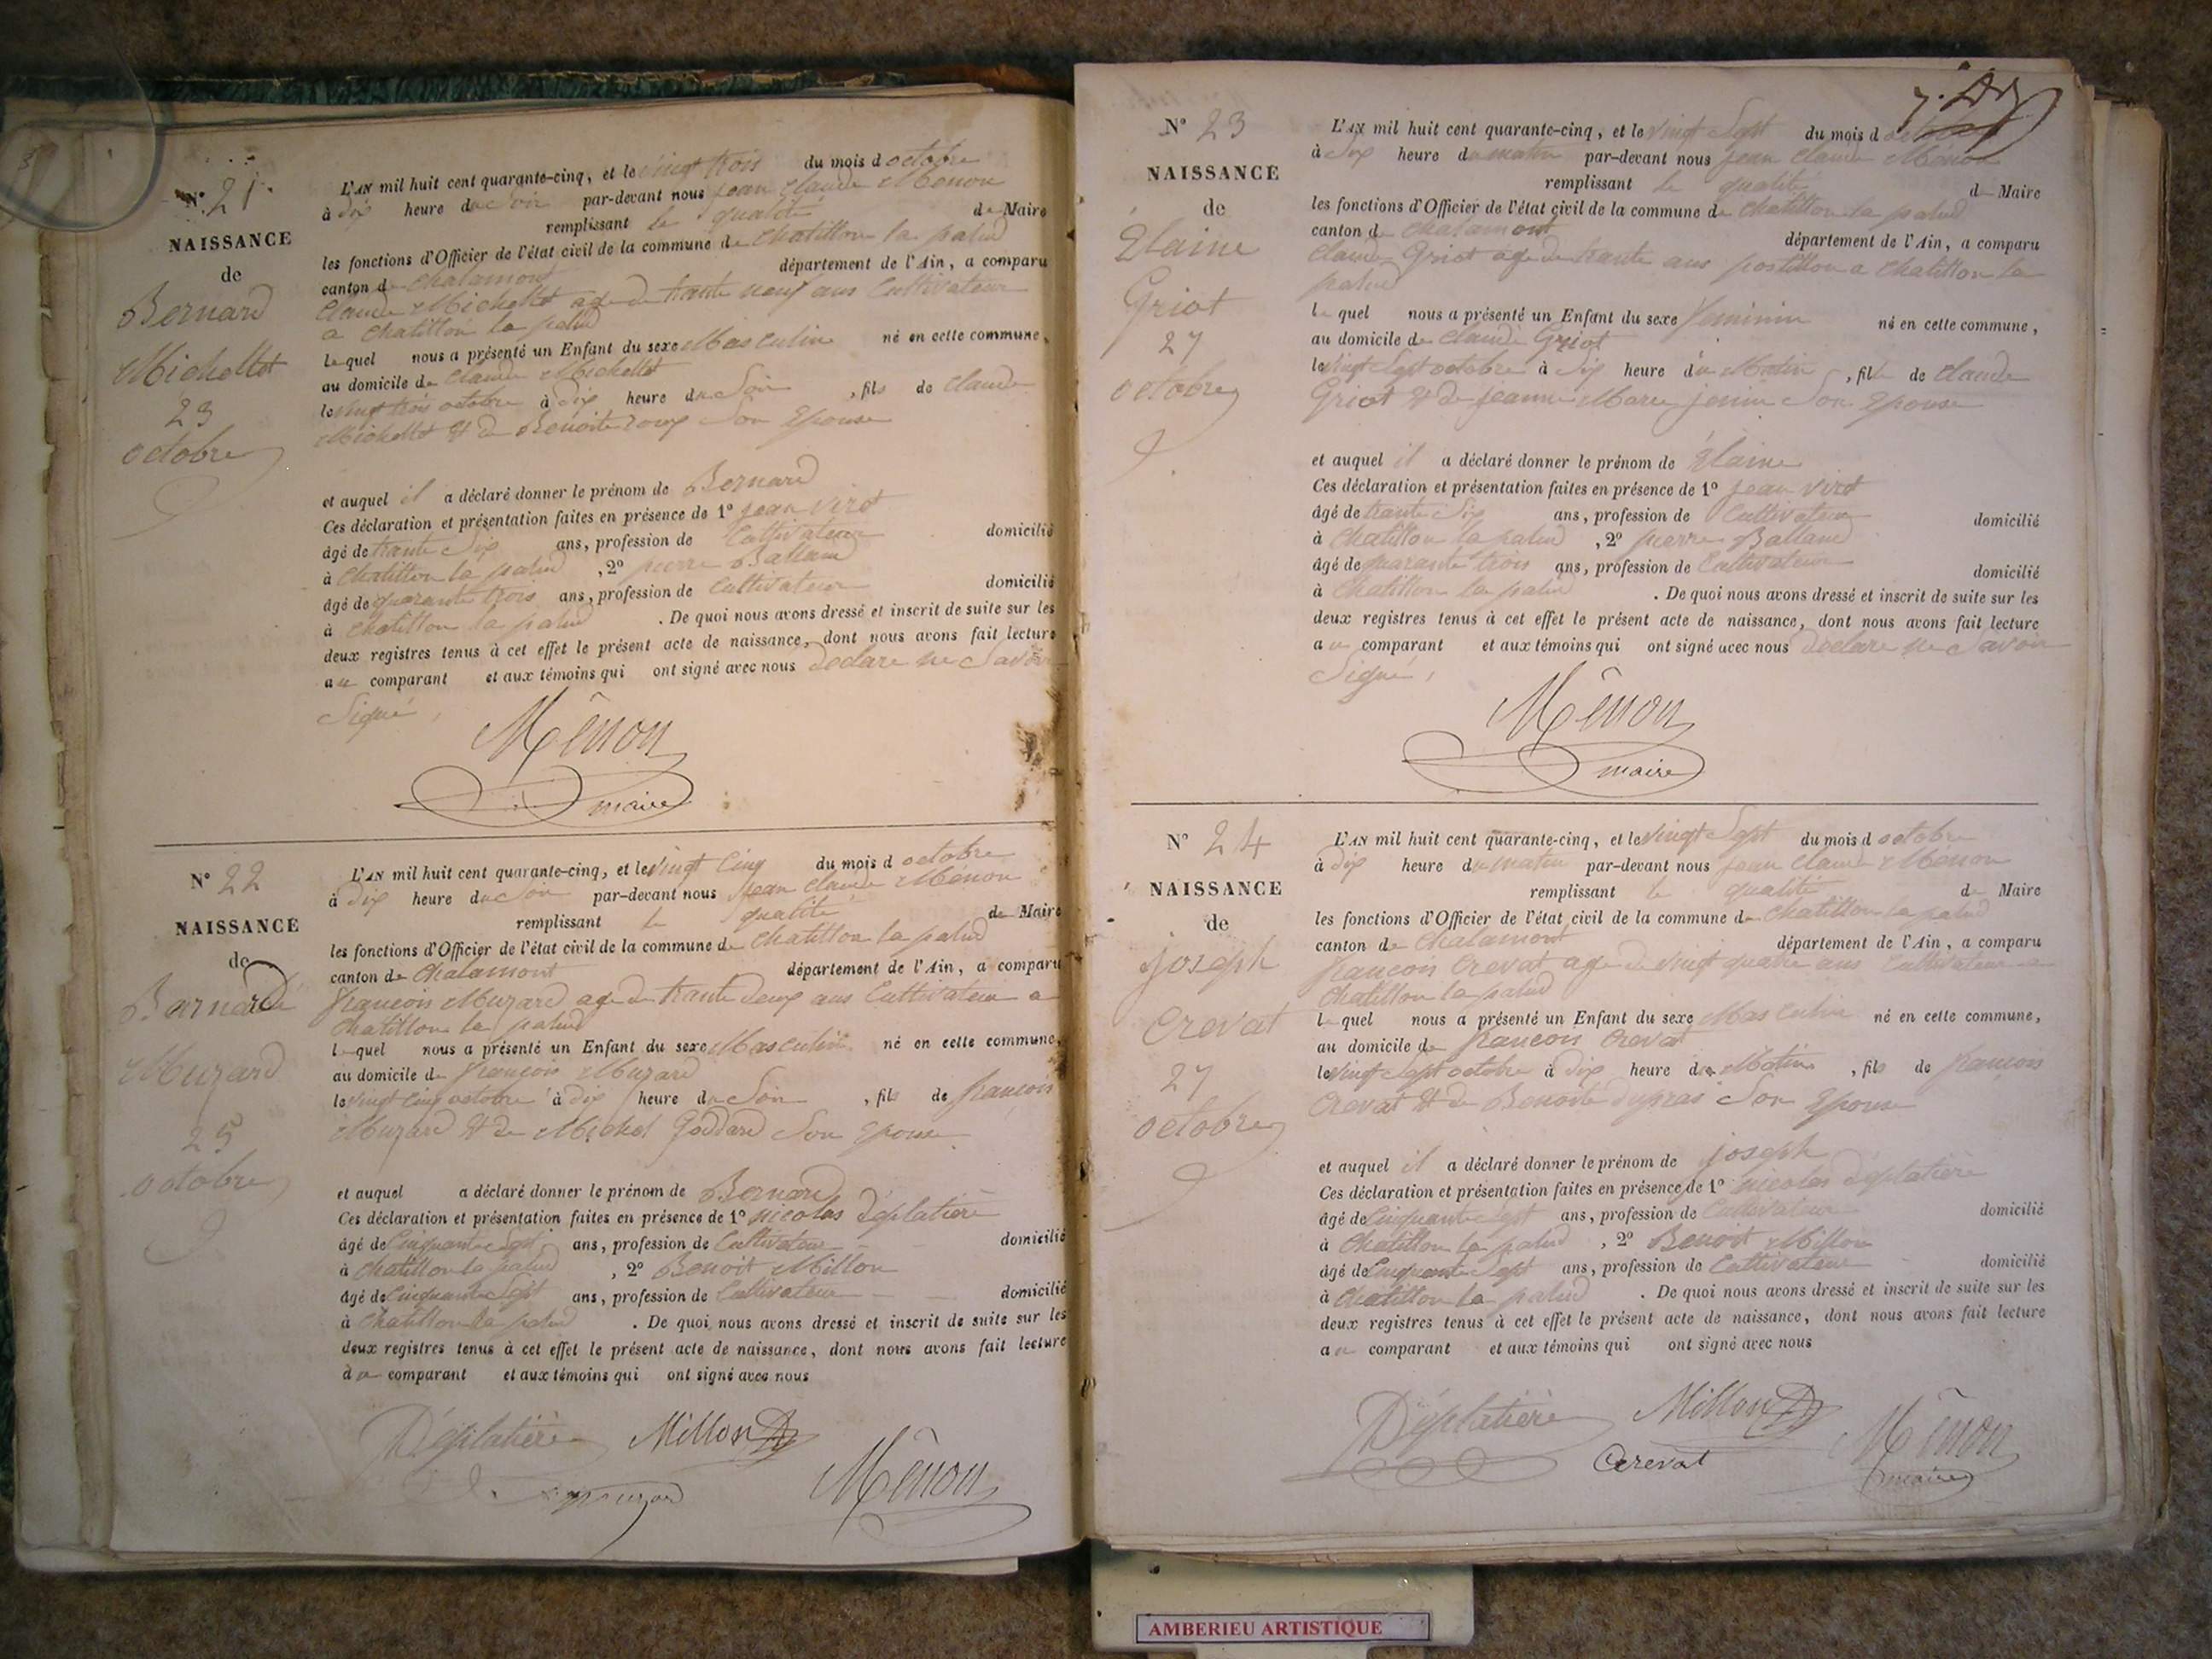 3
N° 21.
NAISSANCE
de
Bernard
Michollet
23
octobre
L'AN mil huit cent quarante-cinq, et le vingt trois du mois d octobre
à dix heure du soir par-devant nous jean claude Mênon
remplissant la qualité de Maire
les fonctions d'Officier de l'état civil de la commune de chatillon la palud
canton de chalamont département de l'Ain, a comparu
claude Michollet age de trante neuf ans Cultivateur
a chatillon la palud
lequel nous a présenté un Enfant du sexe Masculin né en cette commune,
au domicile de claude Michollet
le vingt trois octobre à dix heure du Soir , fils de claude
Michollet et de Benoite roux Son Epouse
et auquel il a déclaré donner le prénom de Bernard
Ces déclaration et présentation faites en présence de 1° jean virot
âgé de trante Six ans, profession de Cultivateur domicilié
à chatillon la palud , 2° pierre Balland
âgé de quarante trois ans, profession de cultivateur domicilié
à chatillon la palud . De quoi nous avons dressé et inscrit de suite sur les
deux registres tenus à cet effet le présent acte de naissance, dont nous avons fait lecture
au comparant et aux témoins qui ont signé avec nous declare ne Savoir
Signé,
Mênon
maire
N° 22
NAISSANCE
de
Barnardé
Muzard
25
octobre
L'AN mil huit cent quarante-cinq, et le vingt Cinq du mois d octobre
à dix heure du Soir par-devant nous jean claude Mênon
remplissant la qualité de Maire
les fonctions d'Officier de l'état civil de la commune de chatillon la palud
canton de chalamont département de l'Ain, a comparu
françois Muzard age de trante deux ans Cultivateur a
chatillon la palud
lequel nous a présenté un Enfant du sexe Masculin né en cette commune,
au domicile de françois Muzard
le vingt cinq octobre à dix heure du Soir , fils de françois
Muzard et de Michel Goddard Son Epouse
et auquel a déclaré donner le prénom de Bernard
Ces déclaration et présentation faites en présence de 1° nicolas Déplatière
âgé de Cinquante Sept ans, profession de Cultivateur domicilié
à chatillon la palud , 2° Benoit Millon
âgé de Cinquante Sept ans, profession de Cultivateur domicilié
à chatillon la palud . De quoi nous avons dressé et inscrit de suite sur les
deux registres tenus à cet effet le présent acte de naissance, dont nous avons fait lecture
au comparant et aux témoins qui ont signé avec nous
Déplatière Millon
muzard Mênon
N° 23
NAISSANCE
de
Elaine
Griot
27
octobre
L'AN mil huit cent quarante-cinq, et le vingt Sept du mois d octobre
à dix heure du matin par-devant nous jean claude Mênon
remplissant la qualité de Maire
les fonctions d'Officier de l'état civil de la commune de chatillon la palud
canton de chalamont département de l'Ain, a comparu
claude Griot age de trante ans postillon a chatillon la
palud
lequel nous a présenté un Enfant du sexe feminin né en cette commune,
au domicile de claude Griot
le vingt Sept octobre à dix heure du Matin , fille de claude
Griot et de jeanne Marie jenin Son Epouse
et auquel il a déclaré donner le prénom de Elaine
Ces déclaration et présentation faites en présence de 1° jean virot
âgé de trante Six ans, profession de Cultivateur domicilié
à chatillon la palud , 2° pierre Balland
âgé de quarante trois ans, profession de Cultivateur domicilié
à chatillon la palud . De quoi nous avons dressé et inscrit de suite sur les
deux registres tenus à cet effet le présent acte de naissance, dont nous avons fait lecture
au comparant et aux témoins qui ont signé avec nous declare ne Savoir
Signé,
Mênon
maire
N° 24
NAISSANCE
de
joseph
Crevat
27
octobre
L'AN mil huit cent quarante-cinq, et le vingt Sept du mois d octobre
à dix heure du matin par-devant nous jean claude Mênon
remplissant la qualité de Maire
les fonctions d'Officier de l'état civil de la commune de chatillon la palud
canton de chalamont département de l'Ain, a comparu
françois Crevat age de vingt quatre ans Cultivateur a
chatillon la palud
lequel nous a présenté un Enfant du sexe Masculin né en cette commune,
au domicile de françois Crevat
le vingt Sept octobre à dix heure du Matin , fils de françois
Crevat et de Benoite dupras Son Epouse
et auquel il a déclaré donner le prénom de joseph
Ces déclaration et présentation faites en présence de 1° nicolas déplatière
âgé de Cinquante Sept ans, profession de Cultivateur domicilié
à chatillon la palud , 2° Benoit Millon
âgé de Cinquante Sept ans, profession de Cultivateur domicilié
à chatillon la palud . De quoi nous avons dressé et inscrit de suite sur les
deux registres tenus à cet effet le présent acte de naissance, dont nous avons fait lecture
au comparant et aux témoins qui ont signé avec nous
Déplatière Millon Mênon
Crevat maire
AMBERIEU ARTISTIQUE